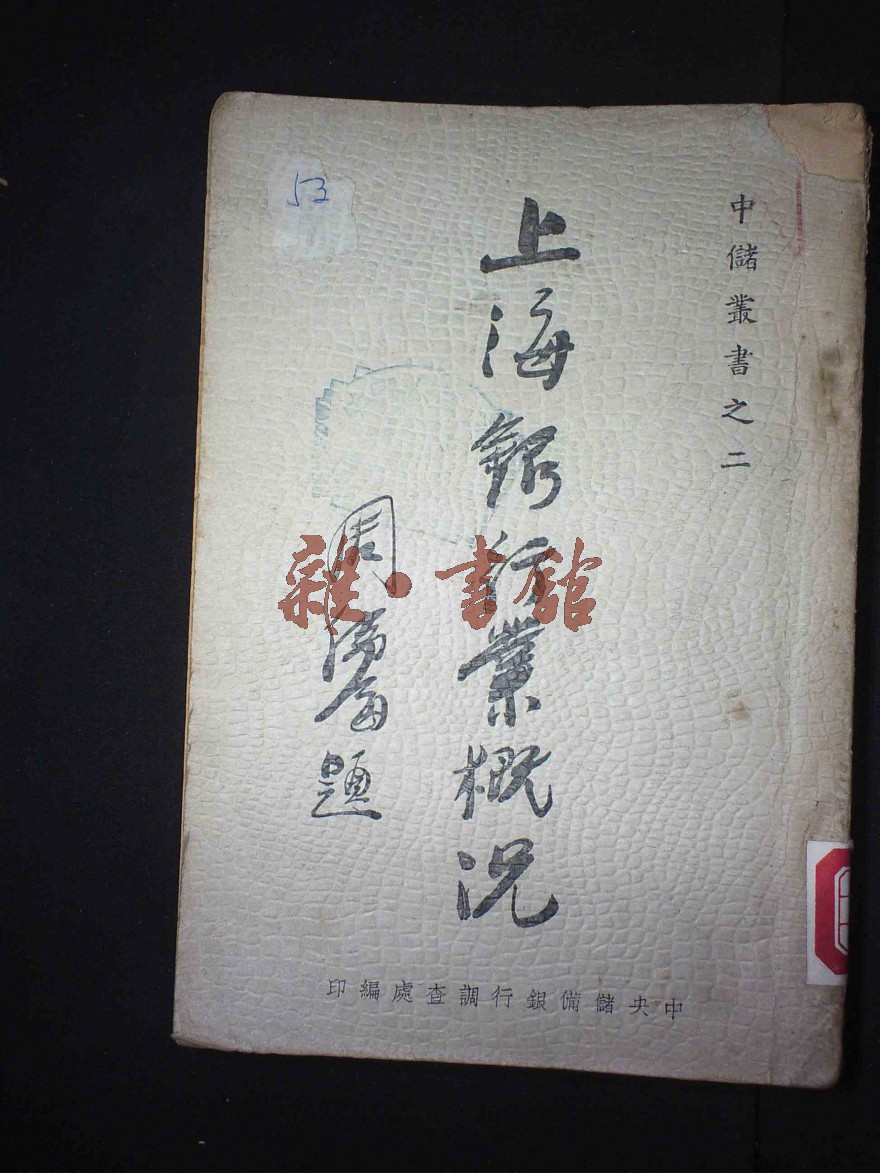 中儲叢書之二
上海銀行業概況
周佛海題
中央儲備銀行調查處編印
53
雜·書館